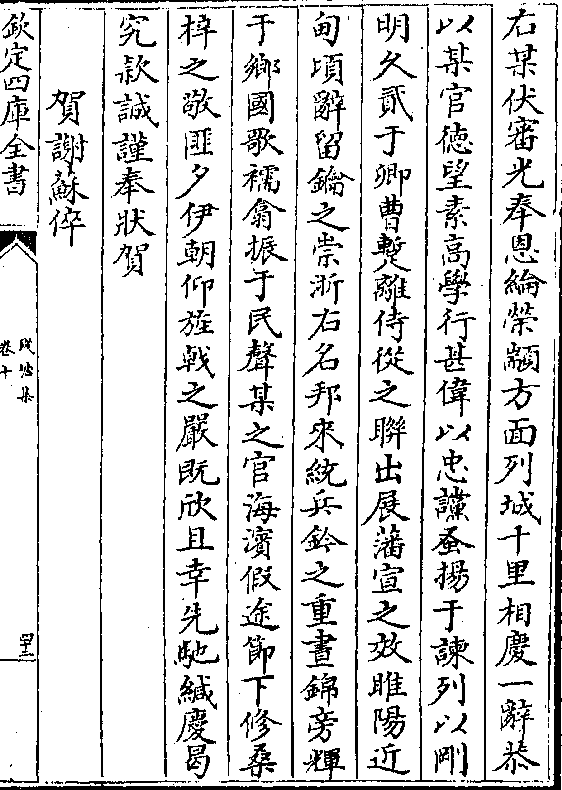 右某伏審光奉恩綸榮顓方面列城十里相慶一辭恭
以某官徳望素高學行甚偉以忠讜蚤揚于諫列以剛
明久貳于卿曹蹔離侍從之聨出展藩宣之效睢陽近
甸頃辭留鑰之崇浙右名邦來統兵鈐之重晝錦旁輝
于鄉國歌襦翕振于民聲某之官海濱假途節下修桑
梓之敬匪夕伊朝仰旌㦸之嚴既欣且幸先馳緘慶曷
究欵誠謹奉狀賀
賀謝蘇倅
欽定四庫全書
錢塘集
卷十
四十二